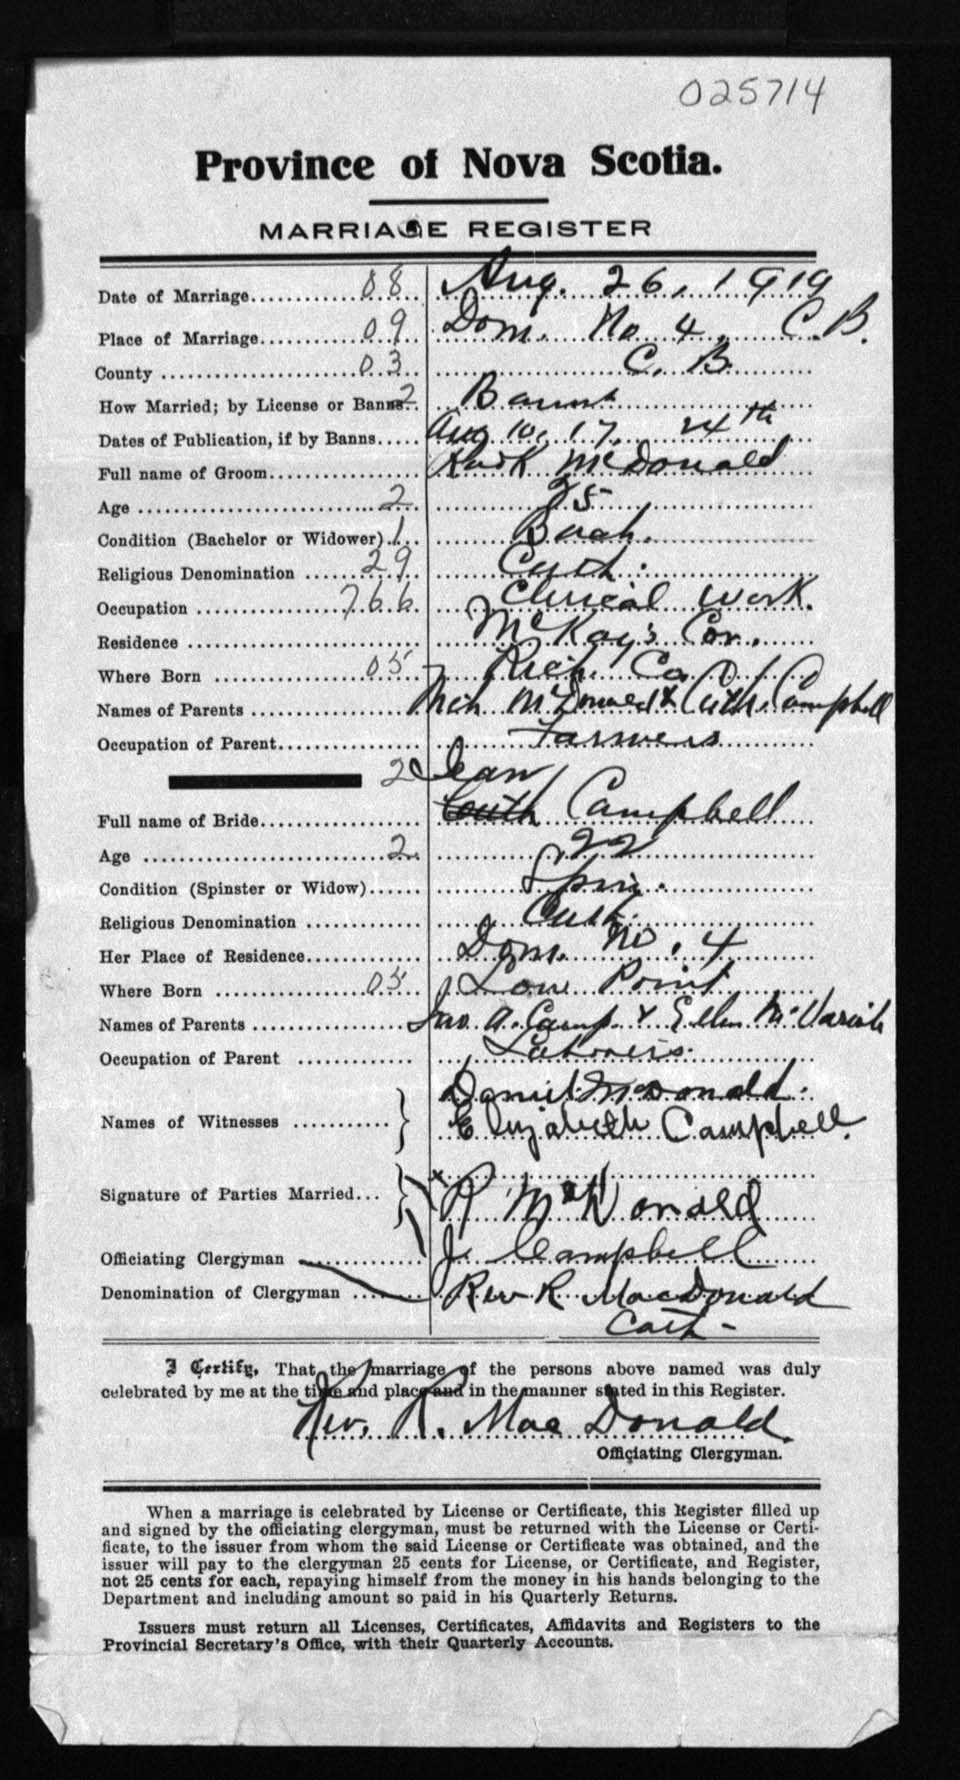 025714
Province of Nova Scotia.
MARRIAGE REGISTER
Date of Marriage 08 Aug. 26, 1919
Place of Marriage 09 Dom. No. 4, C.B.
County 03 C. B.
How Married; by License or Banns 2 Banns
Dates of Publication, if by Banns Aug 10, 17, 24th
Full name of Groom McDonald
Age 2 25
Condition (Bachelor or Widower) 1 Bach.
Religious Denomination 29 Cath.
Occupation 766 Clerical work.
Residence McKay's Cor.
Where Born 05 Rich. Co
Names of Parents Mich McDonald & Cath. Campbell
Occupation of Parent Farmers
2 Jean
Full name of Bride Cath Campbell
Age 2 22
Condition (Spinster or Widow) Spin.
Religious Denomination Cath.
Her Place of Residence Dom. No. 4
Where Born 05 Low Point
Names of Parents Jno A. Camp. & Ellen
Occupation of Parent Laborers
Names of Witnesses Daniel McDonald.
Elizabeth Campbell.
Signature of Parties Married x
R McDonald
Officiating Clergyman J. Campbell
Denomination of Clergyman Rev R. MacDonald
Cath-
I Certify, That the marriage of the persons above named was duly
celebrated by me at the time and place and in the manner stated in this Register.
Rev. R. MacDonald.
Officiating Clergyman.
When a marriage is celebrated by License or Certificate, this Register filled up
and signed by the officiating clergyman, must be returned with the License or Certi-
ficate, to the issuer from whom the said License or Certificate was obtained, and the
issuer will pay to the clergyman 25 cents for License, or Certificate, and Register,
not 25 cents for each, repaying himself from the money in his hands belonging to the
Department and including amount so paid in his Quarterly Returns.
Issuers must return all Licenses, Certificates, Affidavits and Registers to the
Provincial Secretary's Office, with their Quarterly Accounts.